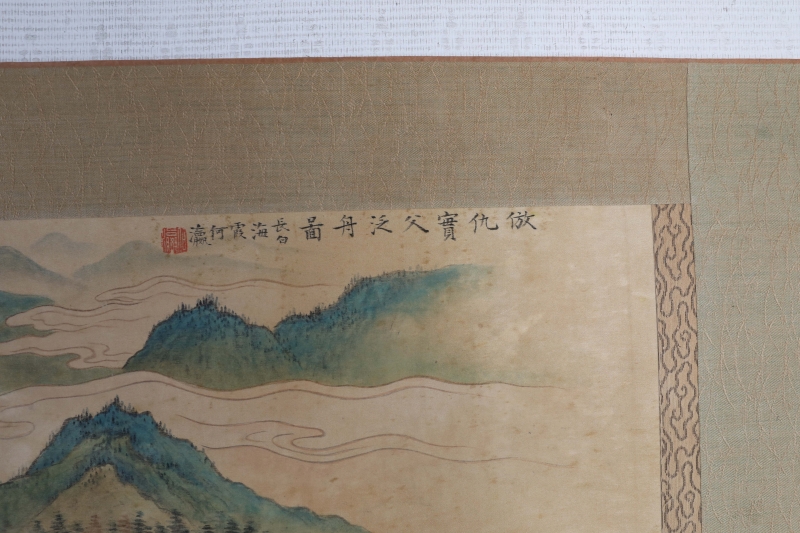 倣仇實父泛舟圖
長白海霞何瀛